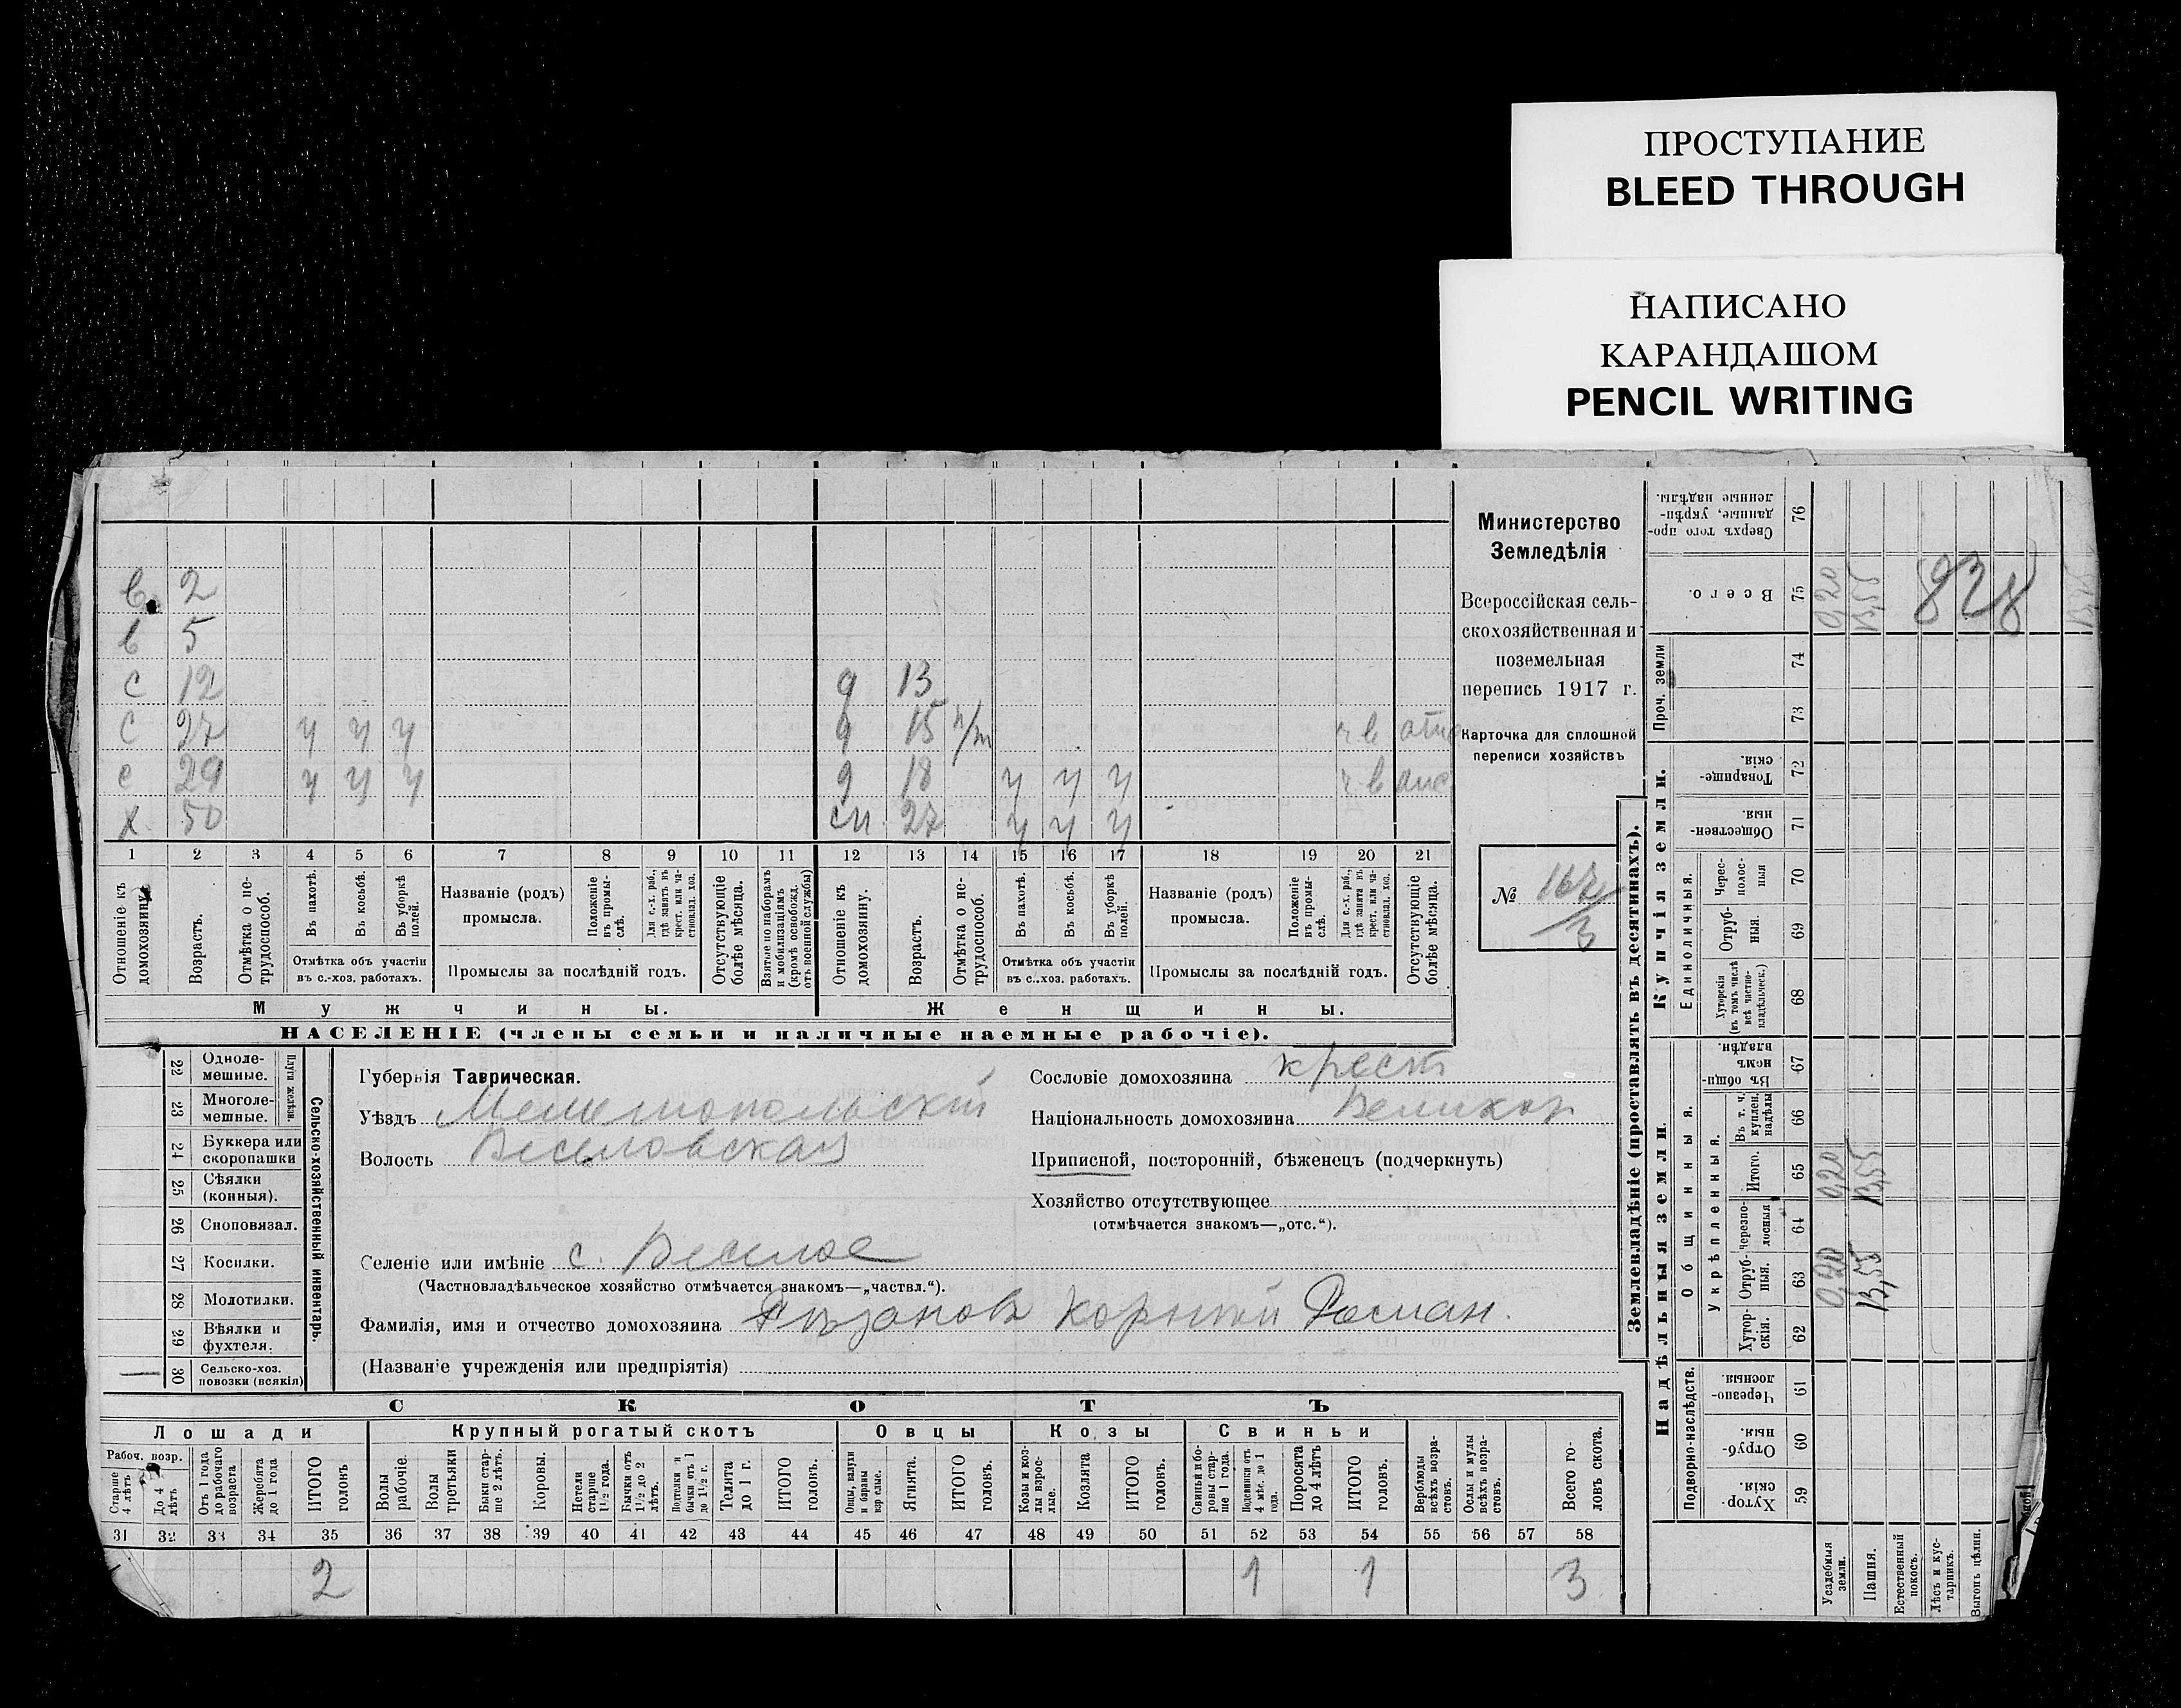 ПРОСТУПАНИЕ
BLEED THROUGH
НАПИСАНО
КАРАНДАШОМ
PENCIL WRITING
в 2
в 5
с 12 д 13
с 27 ч ч ч д 15 н/т ч в
с 29 ч ч ч д 18 ч ч ч ч в
х 50 сн. 27 ч ч ч
1 2 3 4 5 6 7 8 9 10 11 12 13 14 15 16 17 18 19 20 21
Отношеніе къ домохозяину.
Возрастъ.
Отмѣтка о не-
трудоспособ.
Въ пахотѣ.
Въ косьбѣ.
Въ уборкѣ
полей.
Отмѣтка объ участіи
въ с.-хоз. работахъ.
Названіе (родъ)
промысла.
Положеніе
въ промы-
слѣ.
Для с.-х. раб.,
гдѣ занятъ въ
крест. или ча-
стновлад. хоз.
Промыслы за послѣдній годъ.
Отсутствующіе
болѣе мѣсяца.
Взятые по наборамъ
и мобилизаціямъ
(кромѣ освобожд.
отъ военной службы)
Отношеніе къ
домохозяину.
Возрастъ.
Отмѣтка о не-
трудоспособ.
Въ пахотѣ.
Въ косьбѣ.
Въ уборкѣ
полей.
Отмѣтка объ участіи
въ с.-хоз. работахъ.
Названіе (родъ)
промысла.
Положеніе
въ промы-
слѣ.
Для с.-х. раб.,
гдѣ занята въ
крест. или ча-
стновлад. хоз.
Промыслы за послѣдній годъ.
Отсутствующіе
болѣе мѣсяца.
Мужчины. Женщины.
НАСЕЛЕНІЕ (члены семьи и наличные наемные рабочіе).
Министерство
Земледѣлія
Всероссійская сель-
скохозяйственная и
поземельная
перепись 1917 г.
Карточка для сплошной
переписи хозяйствъ
№ 167/3
22 Одноле-
мешные.
23 Многоле-
мешные.
Плуги желѣзн.
24 Буккера или
скоропашки
25 Сѣялки
(конныя).
26 Сноповязал.
27 Косилки.
28 Молотилки.
29 Вѣялки и
фухтеля.
30 Сельско-хоз.
повозки (всякія)
Сельско-хозяйственный инвентарь.
Губернія Таврическая.
Уѣздъ Мелитопольскій
Волость Веселовская
Селеніе или имѣніе с. Веселое
(Частновладѣльческое хозяйство отмѣчается знакомъ—„частвл.“).
Фамилія, имя и отчество домохозяина Рѣзановъ Корнѣй Роман.
(Названіе учрежденія или предпріятія)
Сословіе домохозяина крест
Національность домохозяина Великор
Приписной, посторонній, бѣженецъ (подчеркнуть)
Хозяйство отсутствующее
(отмѣчается знакомъ—„отс.“).
СКОТЪ
Лошади
Рабоч. возр.
Старше
4 лѣтъ
До 4
лѣтъ
Отъ 1 года
до рабочаго
возраста
Жеребята
до 1 года
ИТОГО
головъ
Крупный рогатый скотъ
Волы
рабочіе.
Волы
третьяки
Быки стар-
ше 2 лѣтъ.
Коровы.
Нетели
старше
1½ года.
Бычки отъ
1½ до 2
лѣтъ.
Подтелки и
бычки отъ 1
до 1½ г.
Телята
до 1 г.
ИТОГО
головъ.
Овцы
Овцы, валухи
и бараны
взрослые.
Ягнята.
ИТОГО
головъ.
Козы
Козы и коз-
лы взрос-
лые.
Козлята
ИТОГО
головъ.
Свиньи
Свиньи и бо-
ровы стар-
ше 1 года.
Подсвинки отъ
4 мѣс. до 1
года.
Поросята
до 4 лѣтъ
ИТОГО
головъ.
Верблюды
всѣхъ возра-
стовъ.
Ослы и мулы
всѣхъ возра-
стовъ.
Всего го-
ловъ скота.
31 32 33 34 35 36 37 38 39 40 41 42 43 44 45 46 47 48 49 50 51 52 53 54 55 56 57 58
2 1 1 3
Землевладѣніе (проставлять въ десятинахъ).
Купчія земли.
Надѣльныя земли.
Сверхъ того про-
данные, укрѣп-
ленные надѣлы. 76
Всего. 75 0,20 13,55
828
Проч. земли 74
73
Товарище-
скія. 72
Обществен-
ныя. 71
Единоличныя.
Черес-
полос-
ныя 70
Отруб-
ныя. 69
Хуторскія
(въ томъ числѣ
всѣ частно-
владѣльческ.) 68
Общинныя.
Въ общи-
номъ
владѣн. 67
Укрѣпленныя.
Въ т. ч.
куплен.
надѣлы 66
Итого. 65 0,20 13,55
Черезпо-
лосныя 64
Отруб-
ныя. 63 0,20 13,55
Хутор-
скія. 62
Подворно-наслѣдств.
Черезпо-
лосныя 61
Отруб-
ныя. 60
Хутор-
скія 59
Усадебныя
земли.
Пашня.
Естественный
покосъ.
Лѣсъ и кус-
тарникъ.
Выгонъ цѣлин.